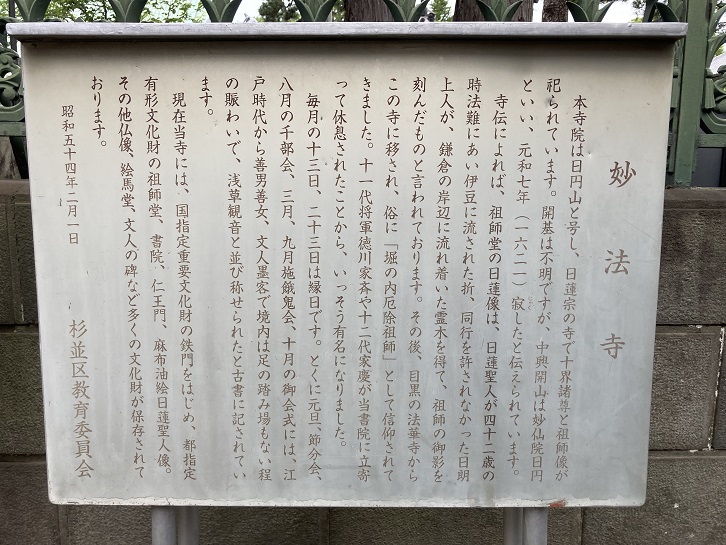 妙法寺
本寺院は日円山と号し、日蓮宗の寺で十界諸尊と祖師像が
祀られています。開基は不明ですが、中興開山は妙仙院日円
といい、元和七年(一六二一)寂したと伝えられています。
寺伝によれば、祖師堂の日蓮像は、日蓮聖人が四十二歳の
時法難にあい伊豆に流された折、同行を許されなかった日朗
上人が、鎌倉の岸辺に流れ着いた霊木を得て、祖師の御影を
刻んだものと言われております。その後、目黒の法華寺から
この寺に移され、俗に「堀の内厄除祖師」として信仰されて
きました。十一代将軍徳川家斉や十二代家慶が当書院に立寄
って休息されたことから、いっそう有名になりました。
毎月の十三日、二十三日は縁日です。とくに元旦、節分会、
八月の千部会、三月、九月施餓鬼会、十月の御会式には、江
戸時代から善男善女、文人墨客で境内は足の踏み場もない程
の賑わいで、浅草観音と並び称せられたと古書に記されてい
ます。
現在当寺には、国指定重要文化財の鉄門をはじめ、都指定
有形文化財の祖師堂、書院、仁王門、麻布油絵日蓮聖人像。
その他仏像、絵馬堂、文人の碑など多くの文化財が保存されて
おります。
昭和五十四年二月一日
杉並区教育委員会